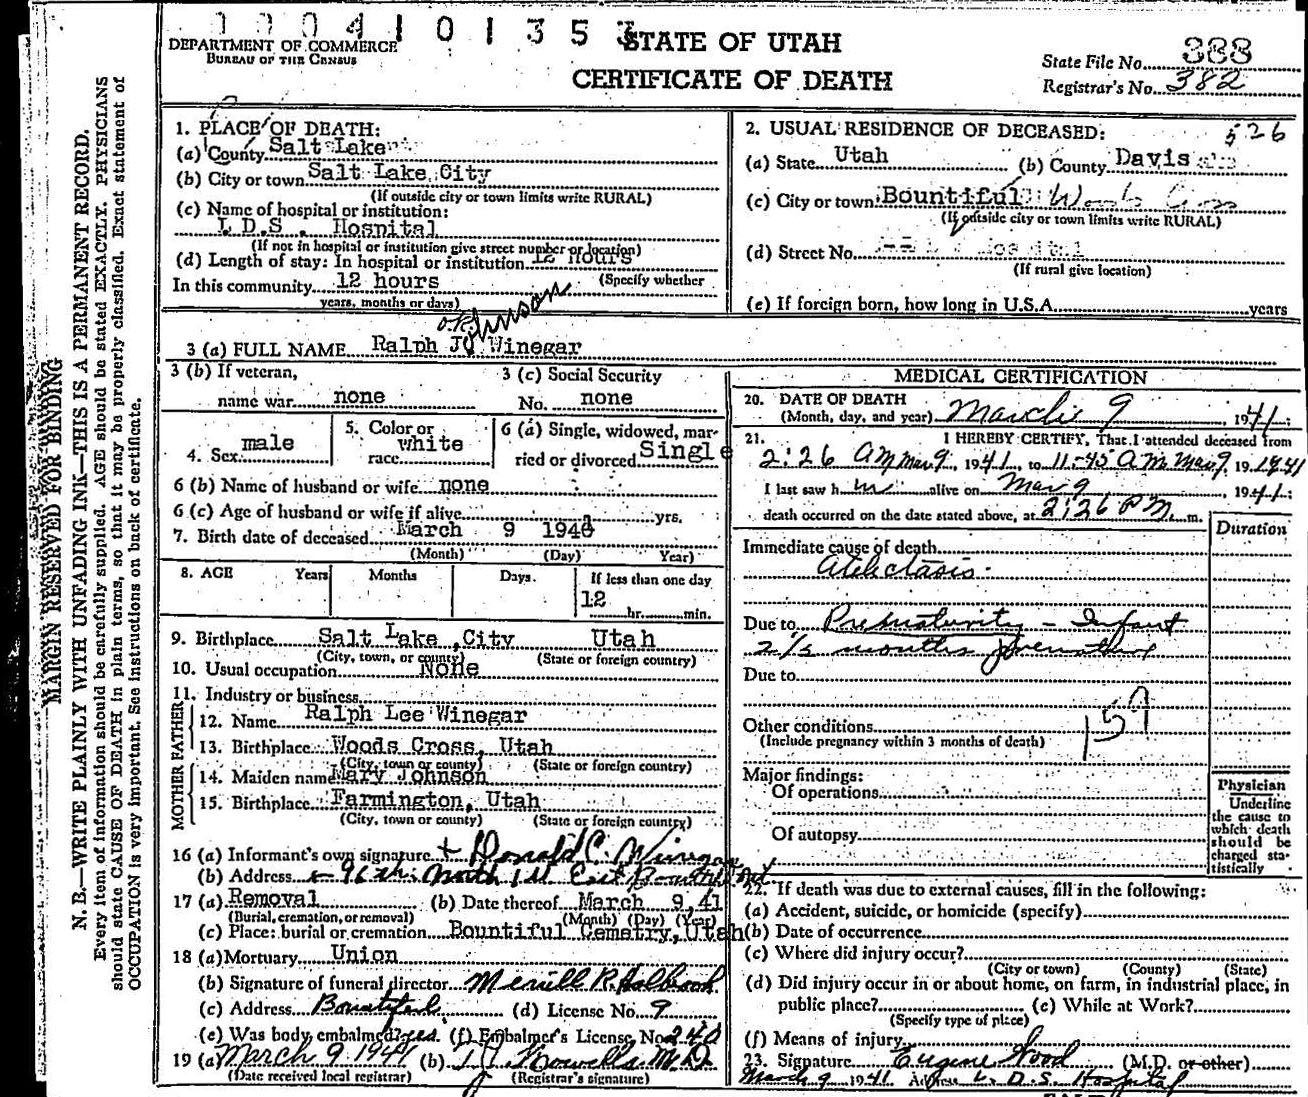 DEPARTMENT OF COMMERCE
BUREAU OF THE CENSUS
STATE OF UTAH
CERTIFICATE OF DEATH
State File No. 388
Registrar's No. 382
MARGIN RESERVED FOR BINDING
N. B.—WRITE PLAINLY WITH UNFADING INK—THIS IS A PERMANENT RECORD.
Every item of information should be carefully supplied. AGE should be stated EXACTLY. PHYSICIANS
should state CAUSE OF DEATH in plain terms, so that it may be properly classified. Exact statement of
OCCUPATION is very important. See instructions on back of certificate.
1. PLACE OF DEATH:
(a) County Salt Lake
(b) City or town Salt Lake City
(If outside city or town limits write RURAL)
(c) Name of hospital or institution:
L D.S. Hospital
(If not in hospital or institution give street number or location)
(d) Length of stay: In hospital or institution 12 hours
(Specify whether
In this community 12 hours
years, months or days)
2. USUAL RESIDENCE OF DECEASED: 526
(a) State Utah (b) County Davis
(c) City or town Bountiful Woods Cross
(If outside city or town limits write RURAL)
(d) Street No. Hospital
(If rural give location)
(e) If foreign born, how long in U.S.A. years
o.k. Johnson
3 (a) FULL NAME Ralph JO Winegar
3 (b) If veteran,
name war none
3 (c) Social Security
No. none
4. Sex male
5. Color or
race white
6 (a) Single, widowed, mar-
ried or divorced Single
6 (b) Name of husband or wife none
6 (c) Age of husband or wife if alive yrs.
7. Birth date of deceased March 9 194
(Month) (Day) Year)
8. AGE Years Months Days. If less than one day
12 hr. min.
9. Birthplace Salt Lake City Utah
(City, town, or county) (State or foreign country)
10. Usual occupation None
11. Industry or business
FATHER
12. Name Ralph Lee Winegar
13. Birthplace Woods Cross, Utah
(City, town or county) (State or foreign country)
MOTHER
14. Maiden name Mary Johnson
15. Birthplace Farmington, Utah
(City, town or county) (State or foreign country)
16 (a) Informant's own signature + Donald C. Winegar
(b) Address 96 North 1st East Bountiful
17 (a) Removal (b) Date thereof March 9, 41
(Burial, cremation, or removal) (Month) (Day) (Year)
(c) Place: burial or cremation Bountiful Cemetry, Utah
18 (a) Mortuary Union
(b) Signature of funeral director Merrill R. Holbrook
(c) Address Bountiful (d) License No. 9
(e) Was body embalmed? yes. (f) Embalmer's License No. 240
19 (a) March 9 1941 (b) T. J. Howells M.D.
(Date received local registrar) (Registrar's signature)
MEDICAL CERTIFICATION
20. DATE OF DEATH
(Month, day, and year) March 9, 1941:
21. I HEREBY CERTIFY, That I attended deceased from
2:26 AM Mar 9, 1941, to 11:45 A.M. Mar 9, 1941
I last saw h im alive on Mar 9, 1941:
death occurred on the date stated above, at 2:26 PM. m.
Duration
Immediate cause of death
Atelectasis
Due to Prematurity - Infant
2 1/2 months premature
Due to
Other conditions
(Include pregnancy within 3 months of death)
159
Major findings:
Of operations
Of autopsy
Physician
Underline
the cause to
which death
should be
charged sta-
tistically
22. If death was due to external causes, fill in the following:
(a) Accident, suicide, or homicide (specify)
(b) Date of occurrence
(c) Where did injury occur?
(City or town) (County) (State)
(d) Did injury occur in or about home, on farm, in industrial place, in
public place? (e) While at Work?
(Specify type of place)
(f) Means of injury
23. Signature Eugene Wood (M.D. or other)
March 9 1941 Address L. D. S. Hospital